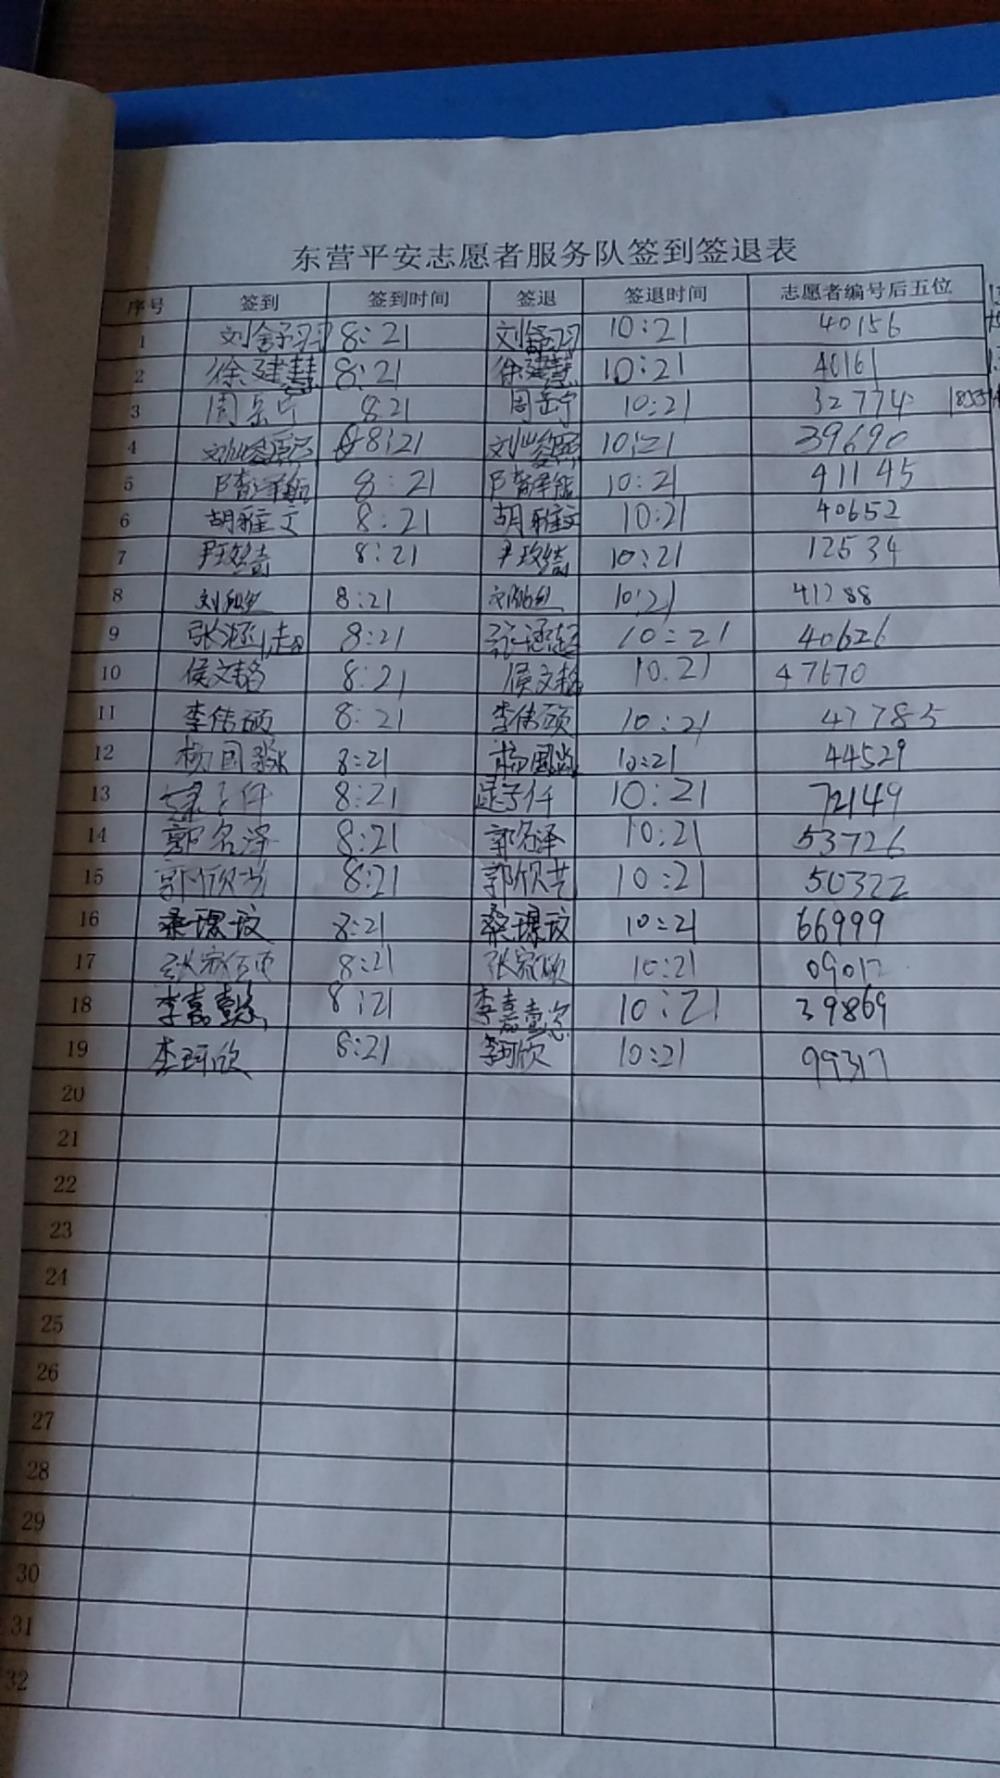 东营平安志愿者服务队签到签退表
序号 签到 签到时间 签退 签退时间 志愿者编号后五位
1 8:21 10:21 40156
2 徐建慧 8:21 徐建慧 10:21 40161
3 周岳宁 8:21 周岳宁 10:21 32774
4 8:21 10:21 39690
5 8:21 10:21 41145
6 胡雅文 8:21 胡雅文 10:21 40652
7 8:21 10:21 12534
8 8:21 10:21 41288
9 张涵超 8:21 张涵超 10:21 40626
10 侯文韬 8:21 侯文韬 10.21 47670
11 李伟硕 8:21 李伟硕 10:21 47785
12 杨国淼 8:21 10:21 44529
13 8:21 10:21 72149
14 郭名泽 8:21 郭名泽 10:21 53726
15 郭欣芸 8:21 郭欣芸 10:21 50322
16 桑璟玟 8:21 桑璟玟 10:21 66999
17 8:21 张家硕 10:21 09012
18 8:21 10:21 39869
19 李珂欣 8:21 李珂欣 10:21 99317
20
21
22
23
24
25
26
27
28
29
30
31
32